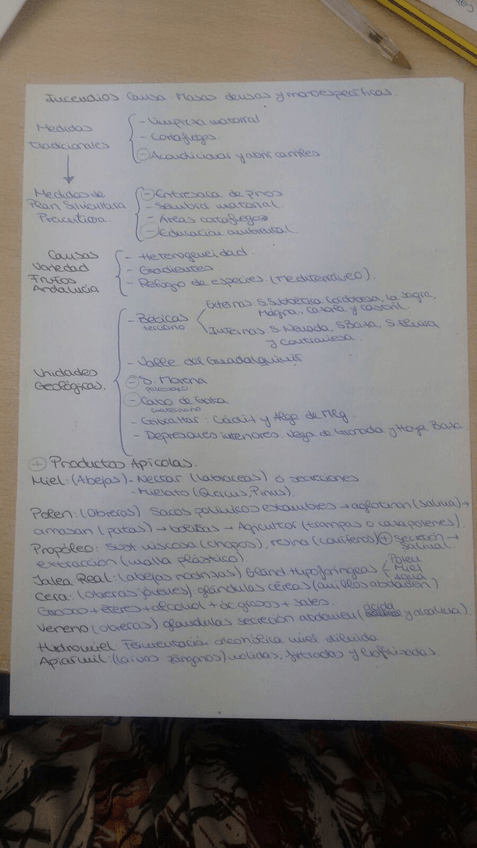 Incendios Causa: Masas densas y monoespecíficas.
Medidas tradicionales
- Limpieza matorral
- Cortafuegos
- Acondicionar y abrir carriles
Medidas de Plan Silvicultura Preventiva
- Entresaca de pinos
- Siembra matorral
- Áreas cortafuegos
- Educación ambiental
Causas Variedad Frutos Andalucía
- Heterogeneidad
- Gradientes
- Refugio de especies (mediterráneo).
Unidades Geológicas.
- Béticas terciario
Externas: S. Subbética Cordobesa, La Sagra, Mágina, Cazorla y Castril
Internas: S. Nevada, S. Baza, S. Filabres y Contraviesa.
- Valle del Guadalquivir
- S. Morena
- Cabo de Gata
- Gibraltar: Cádiz y Algo de Mlg
- Depresiones interiores. Vega de Granada y Hoya Baza
+ Productos Apícolas.
Miel: (Abejas) - Nectar (labiaceas) o secreciones
- Mielato (Quercus, Pinus).
Polen: (obreras) Sacos polínicos estambres → aglutinan (saliva) →
amasan (patas) → bolitas → Agricultor (trampas o cazapolenes).
Propóleo: Sust viscosa (chopos), resina (coníferas) + secreción salival →
extracción (malla plástico)
Jalea Real: (abejas nodrizas) Gland Hypofaríngeas { Polen Miel agua
Cera: (obreras jóvenes) glándulas céreas (anillos abdomen)
+ ésteres + alcohol + ác grasos + sales.
Veneno (obreras) glándulas secreción abdomen (ácida y alcalina).
Hydromiel: Fermentación alcohólica miel diluida.
Apiarmil: (larvas zánganos) molidas, filtradas y liofilizadas